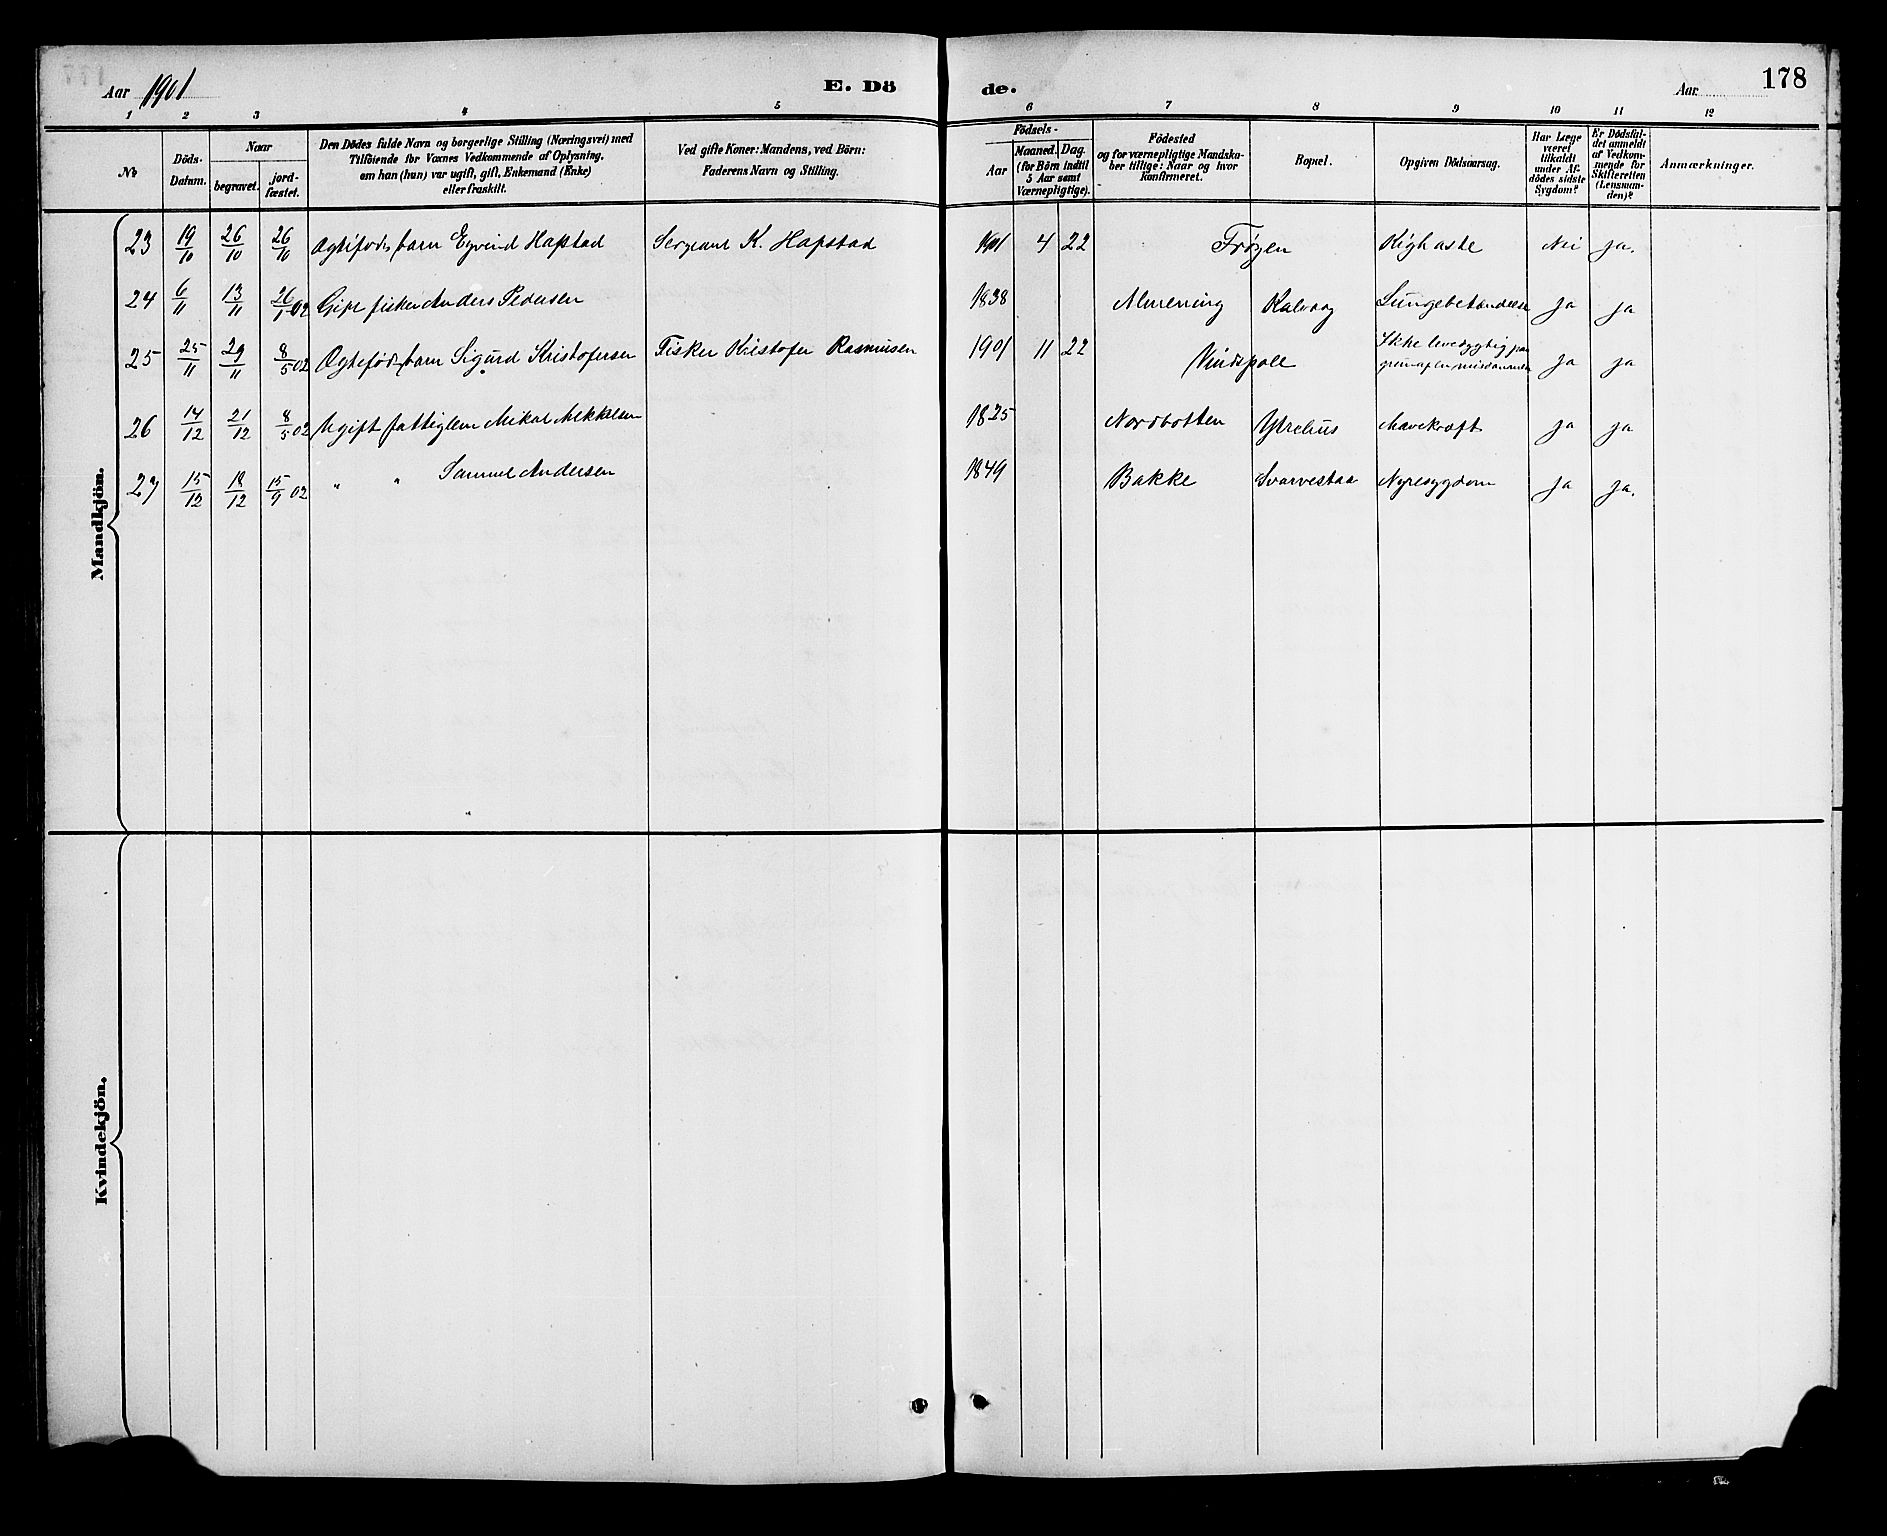 Aar 1901
E. Dö
de.
Aar
178
1 2 3 4 5 6 7 8 9 10 11 12
No
Döds-Datum.
Naar
begravet.
jord-fæstet.
Den Dödes fulde Navn og borgerlige Stilling (Næringsvei) med
Tilföiende for Voxnes Vedkommende af Oplysning,
om han (hun) var ugift, gift, Enkemand (Enke)
eller fraskilt.
Ved gifte Koner: Mandens, ved Börn:
Faderens Navn og Stilling.
Födsels-
Aar
Maaned. Dag.
(for Börn indtil
5 Aar samt
Værnepligtige).
Födested
og for værnepligtige Mandska-
ber tillige: Naar og hvor
Konfirmeret.
Bopæl.
Opgiven Dödsaarsag.
Har Læge
været
tilkaldt
under Af-
dödes sidste
Sygdom?
Er Dödsfal-
det anmeldt
af Vedkom-
mende for
Skifteretten
(Lensman-
den)?
Anmærkninger.
Mandkjön.
23 19/10 26/10 26/10 Ægtefødt barn Eyvind Hapstad Sergeant K. Hapstad 1901 4 22 Frøyen Kighoste Nei ja.
24 6/11 13/11 26/1 02 Gift fisker Anders Pedersen 1838 Kalvaag Lungebetændelse ja ja
25 25/11 29/11 8/5 02 Ægtefødt barn Sigurd Kristofersen Fisker Kristofer Rasmusen 1901 11 22 Vindspole Ikke levedygtig paa
grund af en misdannelse ja ja
26 14/12 21/12 8/5 02 Ugift fattiglem Mikal Mikkelsen 1825 Nordbotten Ytrehus Mavekræft ja ja
27 15/12 18/12 15/9 02 " " Samuel Andersen 1849 Bakke Svarvestaa Nyresygdom ja ja.
Kvindekjön.